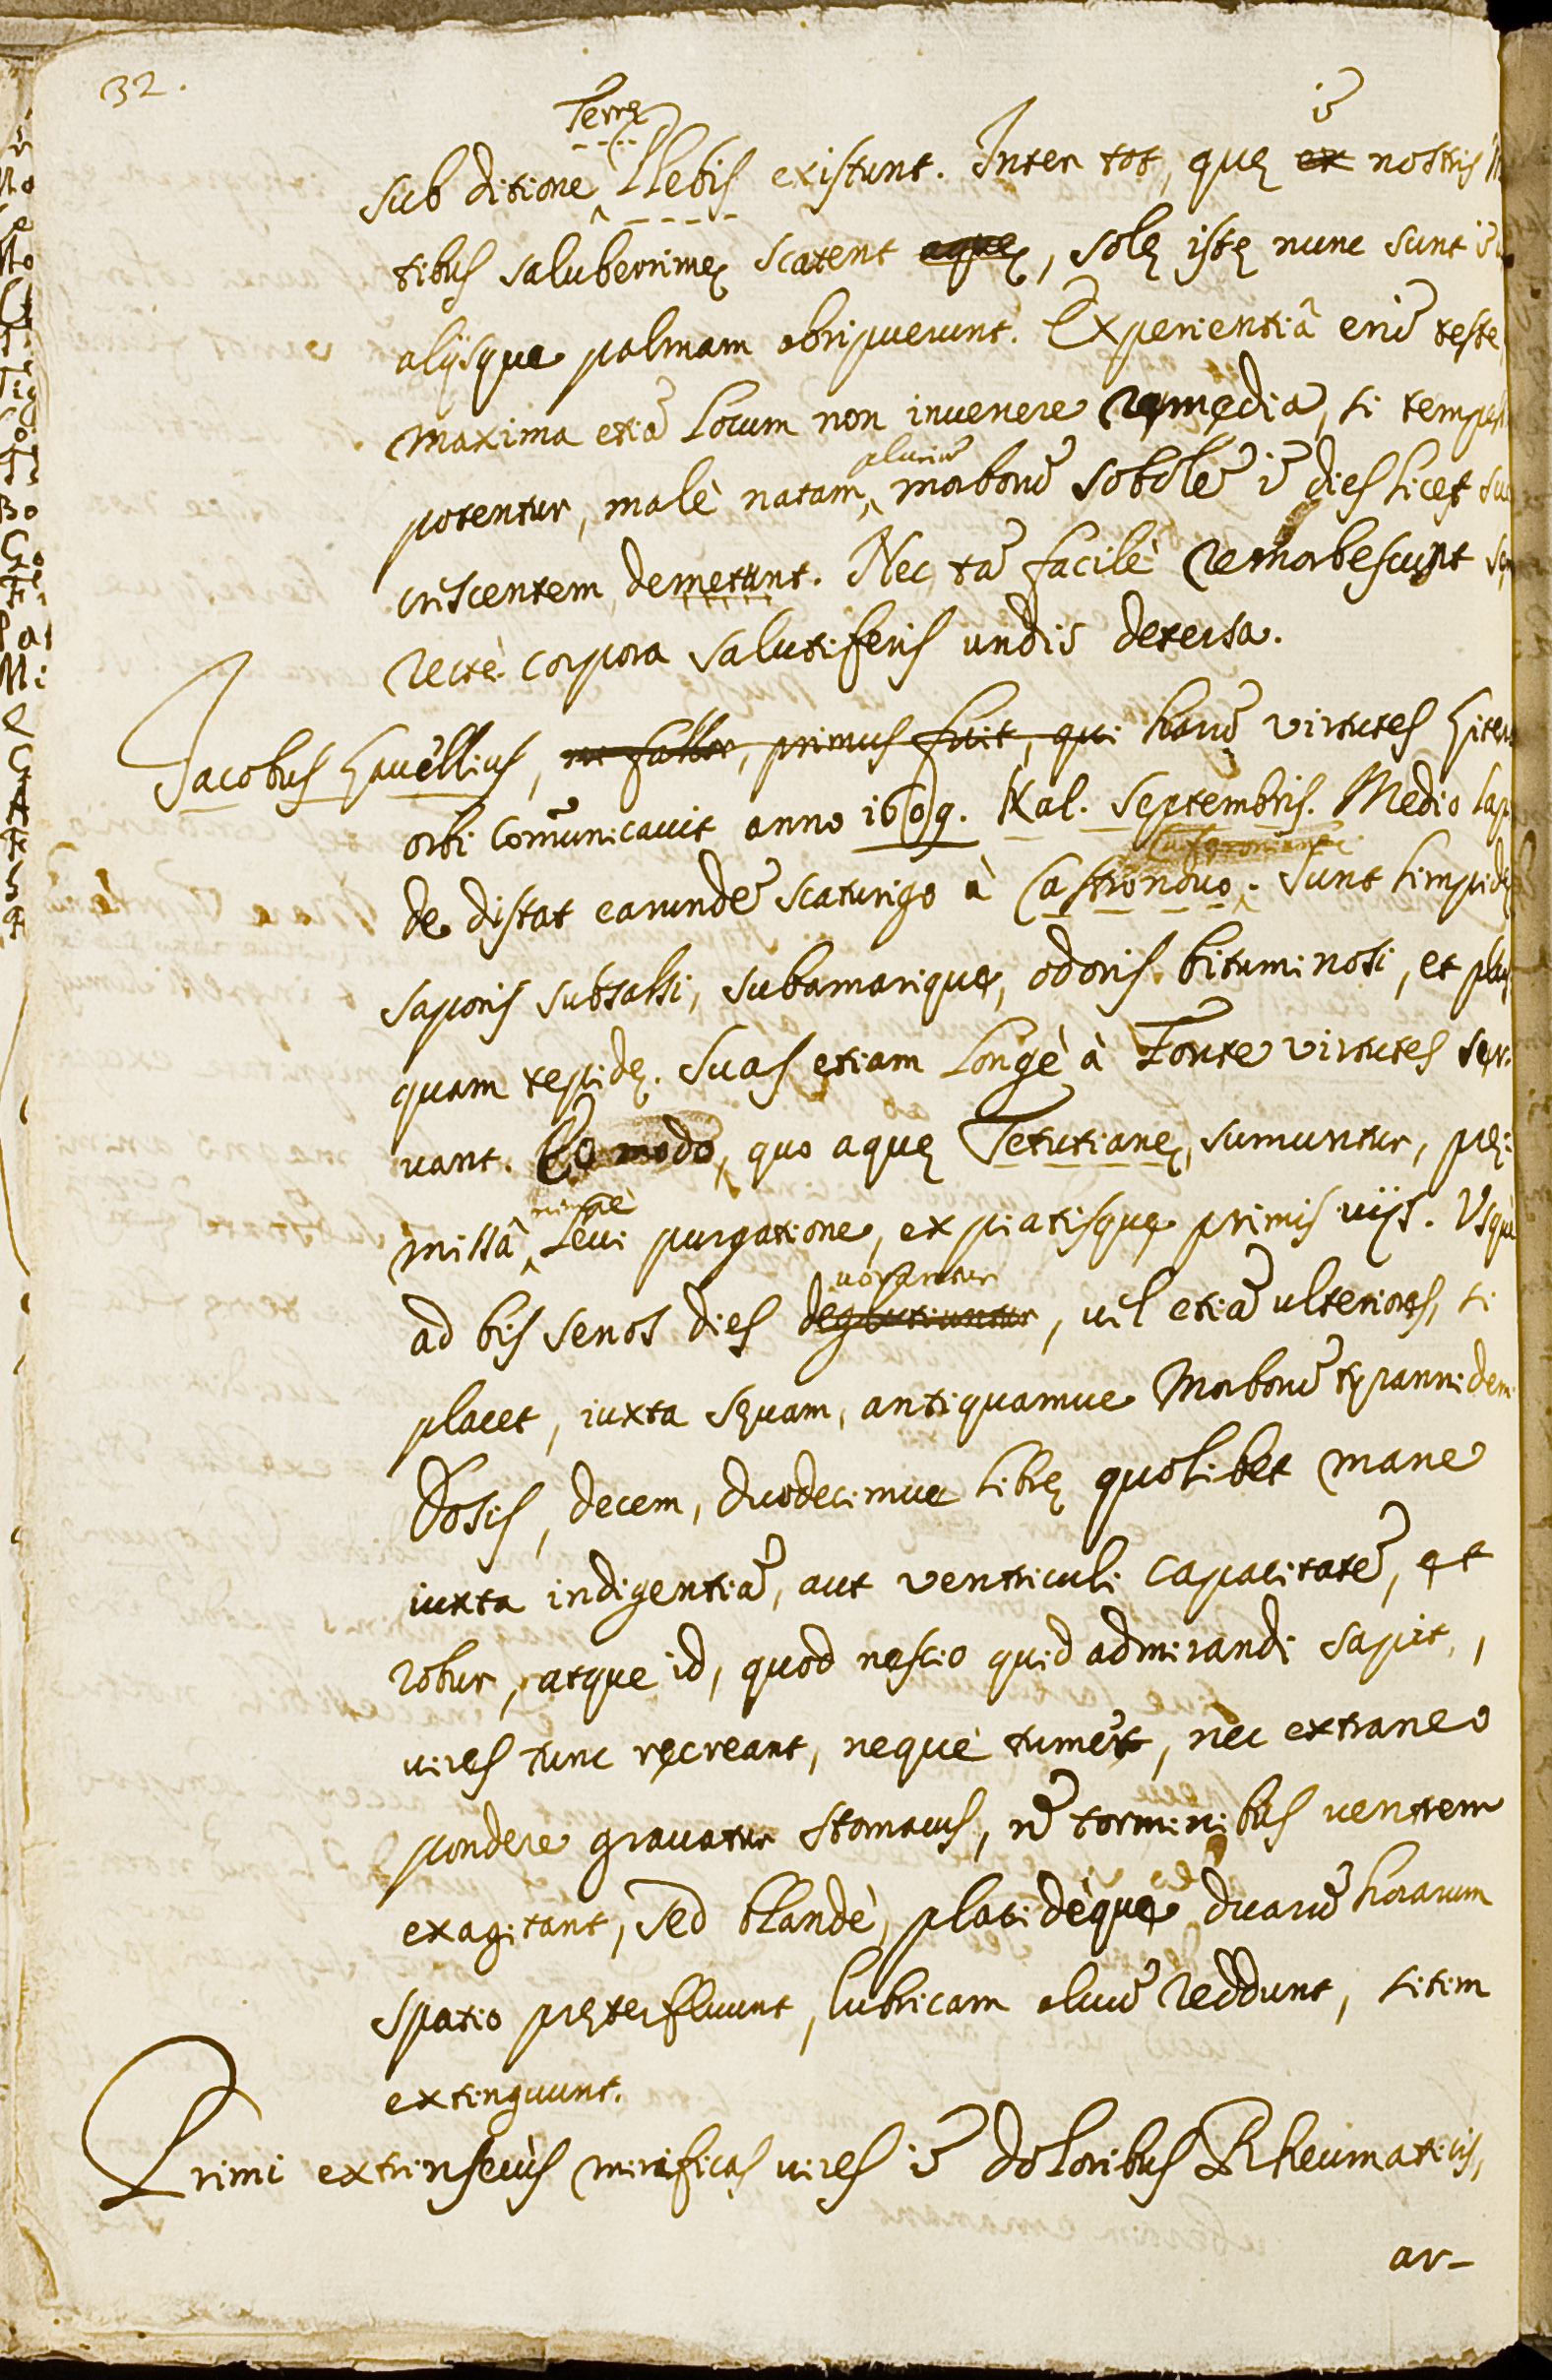 32.
Terrę
sub ditione Plebis existunt. Inter tot, quę ex nostris
ĩ
tibus saluberrimę scatent aquę, solę istę nunc sunt
alijsque palmam abripuerunt. Experientiâ enĩ teste
maxima etiã locum non inuenere remedia, si tempest
plurimũ
potentur, malè natam, morborũ sobolẽ ĩ dies licet suc
criscentem, demetunt. Nec tã facilè remorbescunt
rectè corpora salutiferis undis detersa.
Jacobus Gauellius, ni fallor, primus fuit, qui harũ virtutes liter
orbi com̃unicauit anno 1609. Kal. Septembris. Medio lap
de distat earundẽ scaturigo à Castronouo. Sunt limpidę
saporis subsalsi, subamarique, odoris bituminosi, et plus
quam tepidę. Suas etiam longè à Fonte virtutes ser:
uant. Eo modo, quo aquę Tetutianę, sumuntur, prę:
nimpè
missâ, leui purgatione, expiatisque primis uijs. Usquè
uorantur
ad bis senos dies deglutiuntur, uel etiã ulteriores, si
placet, iuxta sęuam, antiquamue Morborũ tyrannidem
Dosis, decem, duodecimue librę quolibet mane
iuxta indigentiã, aut ventriculi capacitatẽ, et
robur, atque id, quod nescio quid admirandi sapit,
uires tunc recreant, nequè tumet, nec extraneo
pondere grauatur stomacus, nẽ torminibus uentrem
exagitant, sed blandè, placidèque duarũ horarum
spatio pręterfluunt, lubricam aluũ reddunt, sitim
extinguunt.
Primi extrinsecùs mirificas uires ĩ doloribus Rheumaticis,
ar-